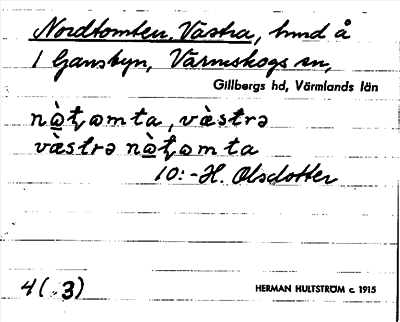 Nordtomten, Västra, hmd å
1 Gansbyn, Värmskogs sn,
Gillbergs hd, Värmlands län
nò̱ʈomta, vὰstrə
vὰstrə nò̱ʈomta
10:-H. Olsdotter
4(.3)
HERMAN HULTSTRÖM c. 1915